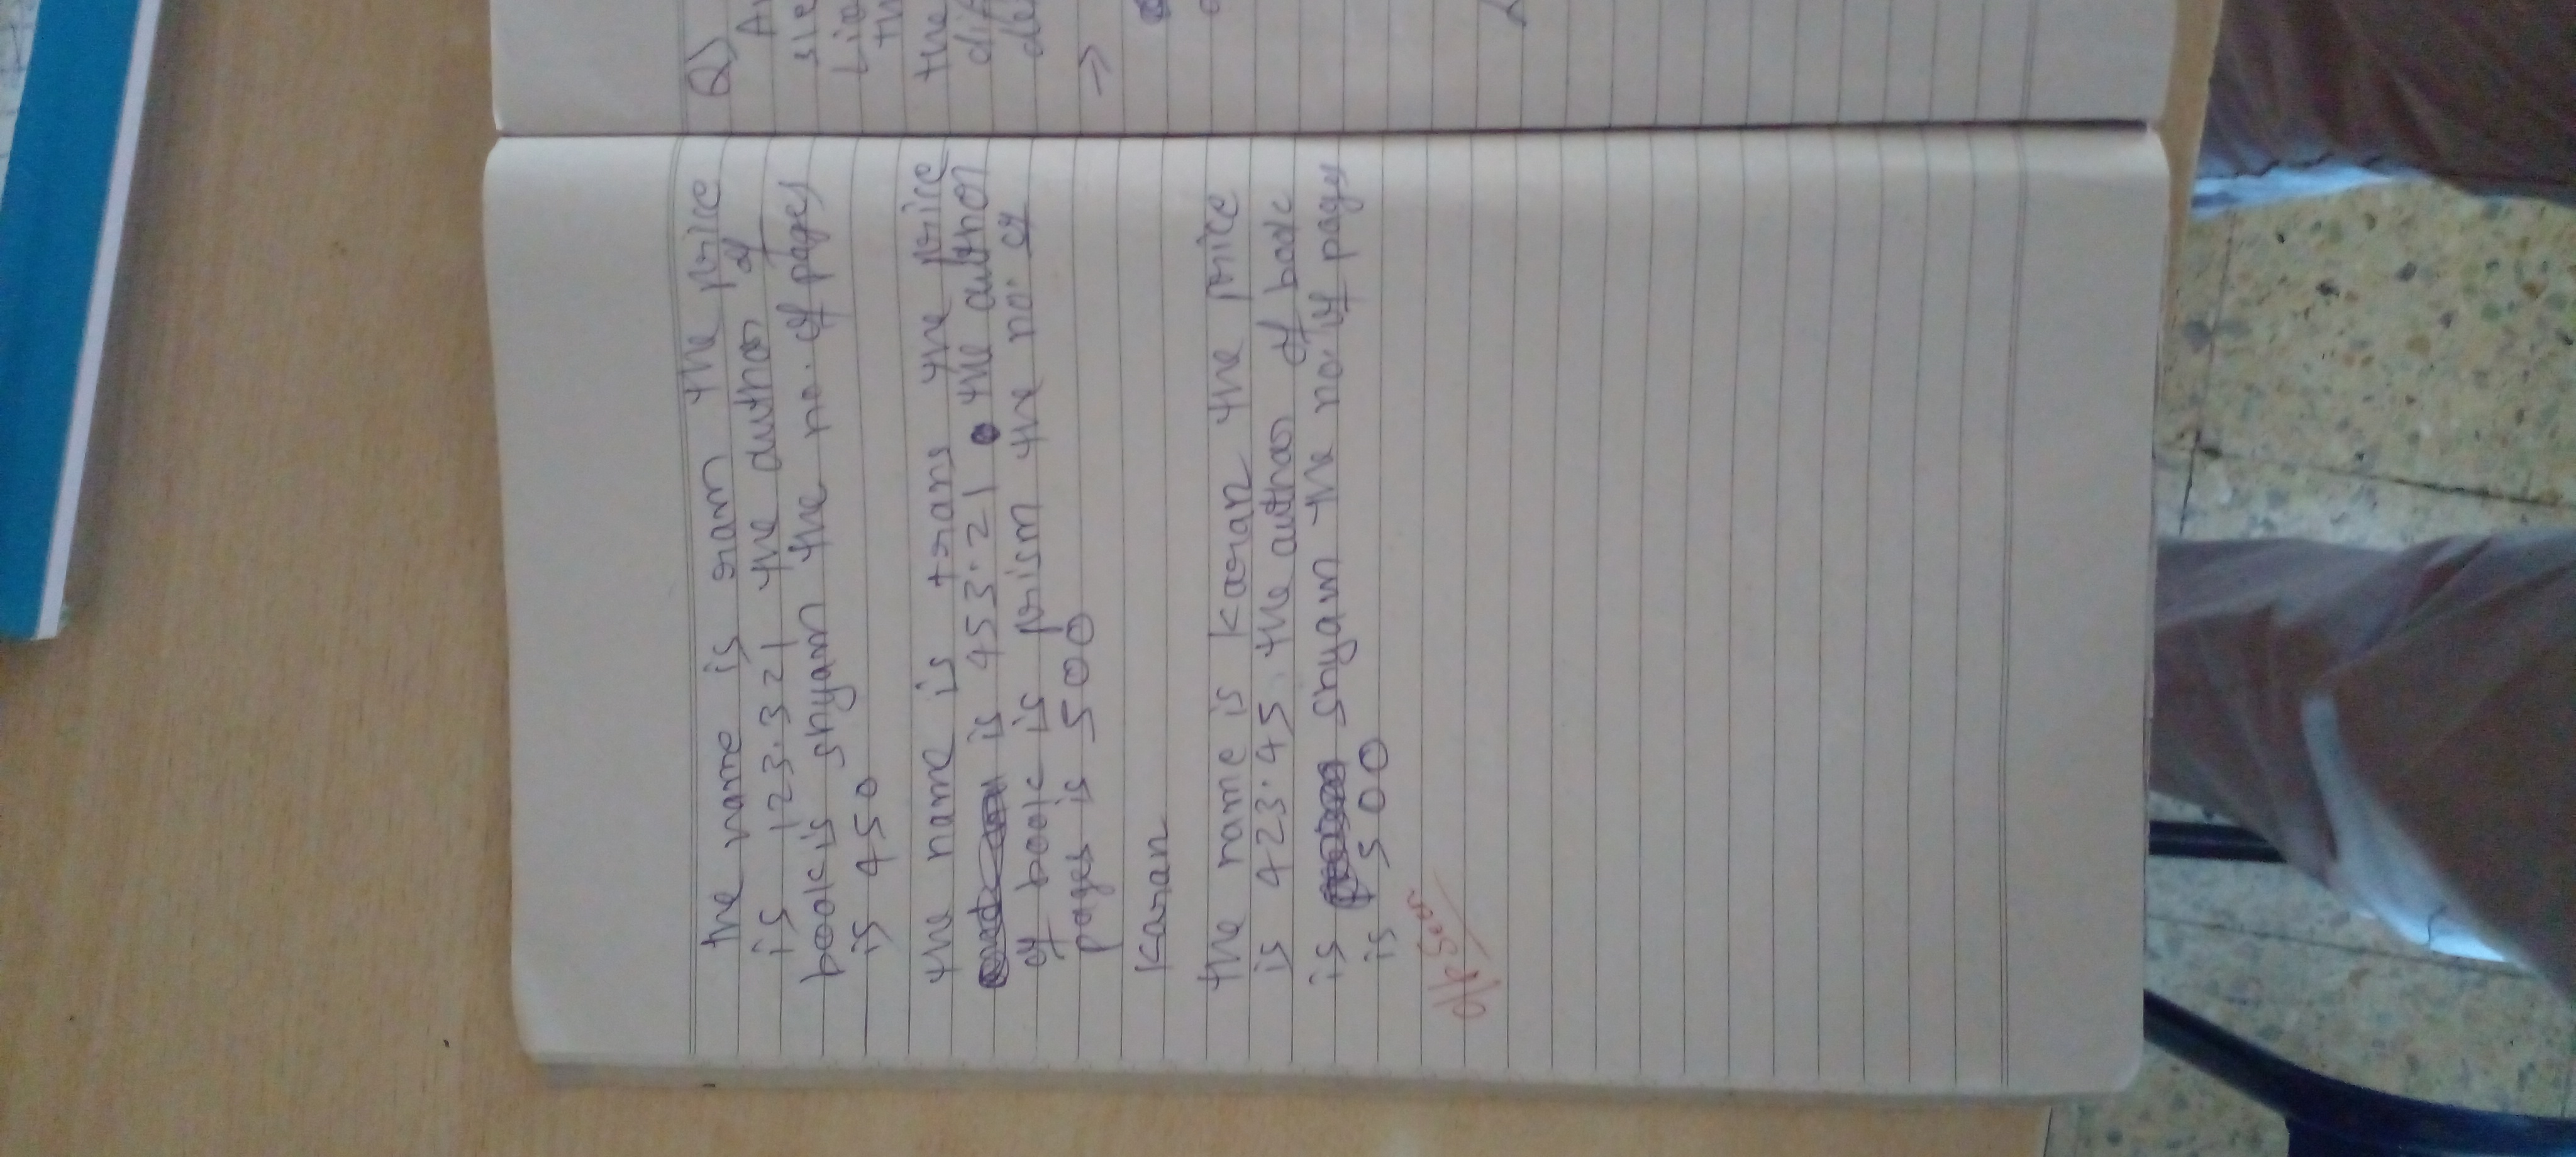 the name is ram the price
is 123.321 the author of
book is shyam the no. of pages
is 450
the name is trans the price
is 453.21 the author
of book is prism the no. of
pages is 500
karan
the name is karan the price
is 423.45. the author of book
is shyam the no. of pages
is 500
o/p seen
Q)
the